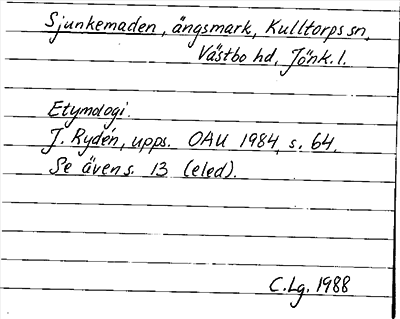 Sjunkemaden, ängsmark, Kulltorps sn,
Västbo hd, Jönk. l.
Etymologi.
J. Rydén, upps. OAU 1984, s. 64.
Se även s. 13 (eled).
C.Lg. 1988